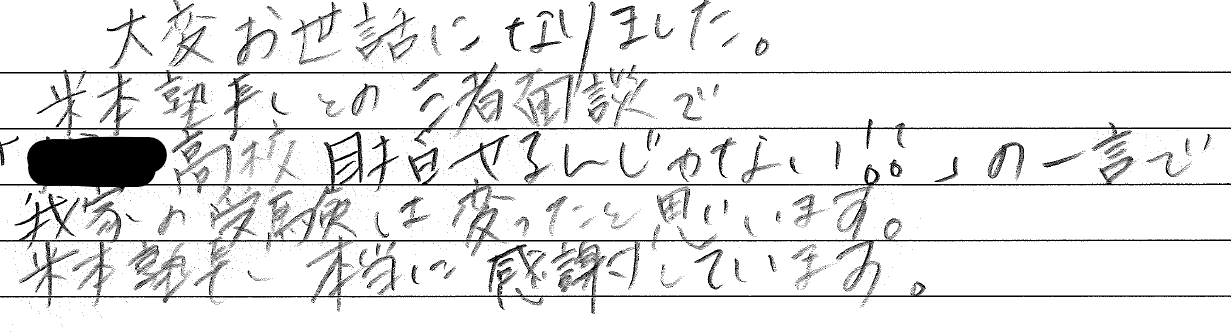 大変お世話になりました。
米本塾長との三者面談で
「高校 目指せるんじゃない!?。。」の一言で
我家の受験は変ったと思います。
米本塾長、本当に感謝しています。